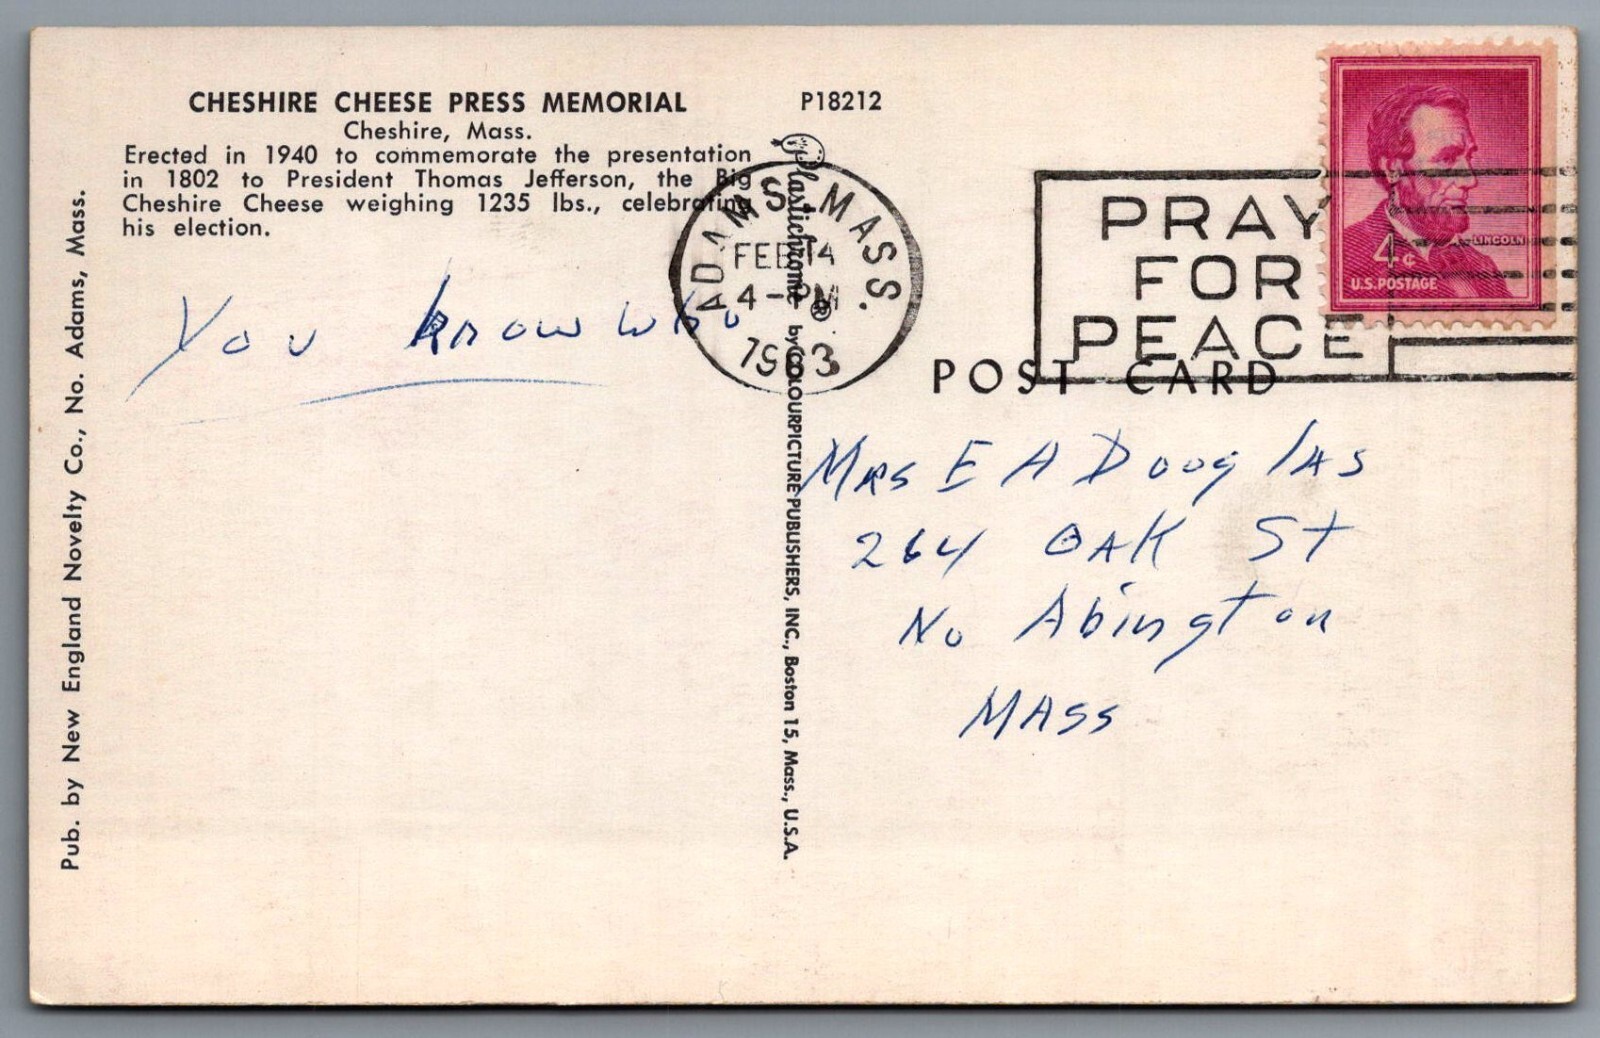 CHESHIRE CHEESE PRESS MEMORIAL
Cheshire, Mass.
Erected in 1940 to commemorate the presentation
in 1802 to President Thomas Jefferson, the Big
Cheshire Cheese weighing 1235 lbs., celebrating
his election.
P18212
You know who
Pub. by New England Novelty Co., No. Adams, Mass.
Plastichrome ® by COLOURPICTURE PUBLISHERS, INC., Boston 15, Mass., U.S.A.
ADAMS, MASS.
FEB 14
4-PM
1963
PRAY
FOR
PEACE
4¢
LINCOLN
U.S. POSTAGE
POST CARD
Mrs E A Douglas
264 OAK St
No Abington
MASS